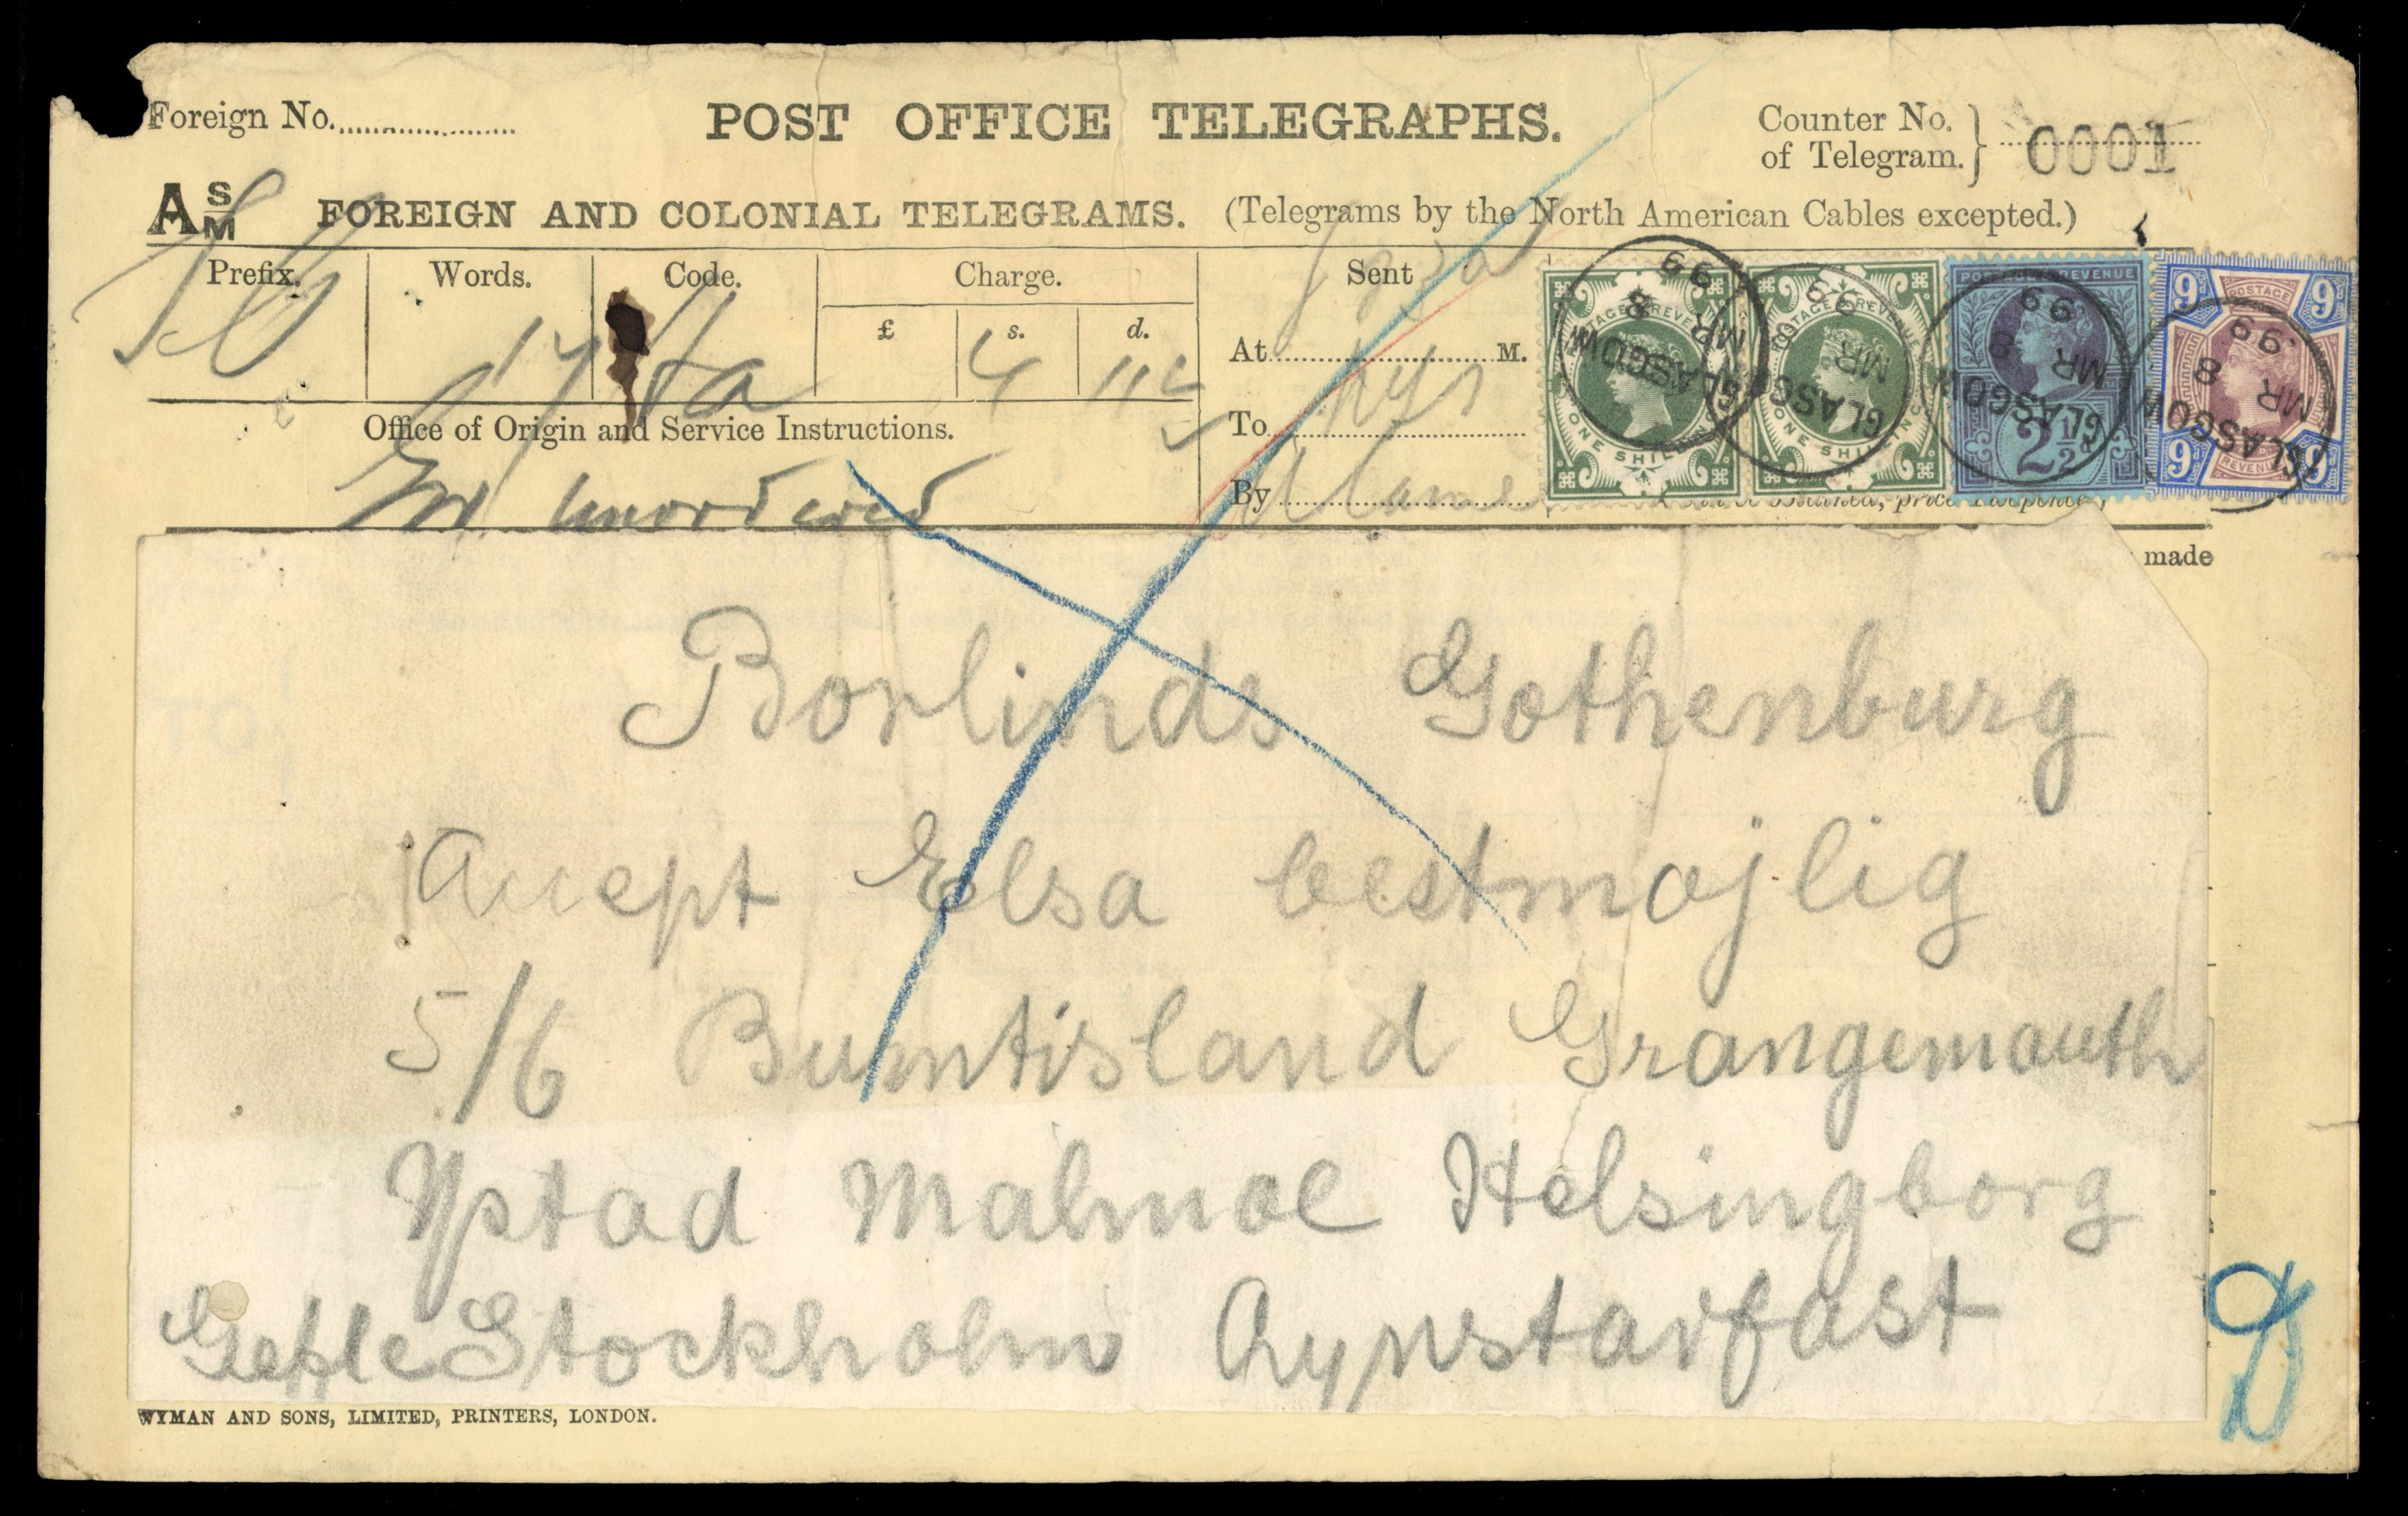 Foreign No.
POST OFFICE TELEGRAPHS.
Counter No. of Telegram. } 0001
A S M FOREIGN AND COLONIAL TELEGRAMS. (Telegrams by the North American Cables excepted.)
Prefix. Words. Code. Charge. Sent
£ s. d.
17
At M.
To
By
Office of Origin and Service Instructions.
POSTAGE & REVENUE ONE SHILLING
GLASGOW MR 8 99
POSTAGE & REVENUE ONE SHILLING
GLASGOW MR 8 99
POSTAGE & REVENUE 2½d
GLASGOW MR 8 99
9d 9d POSTAGE REVENUE 9d 9d
GLASGOW MR 8 99
made
TO
Borlinds Gothenburg
Accept Elsa bestmojlig
5/6 Burntisland Grangemouth
Ystad Malmoe Helsingborg
Gefle Stockholm
WYMAN AND SONS, LIMITED, PRINTERS, LONDON.